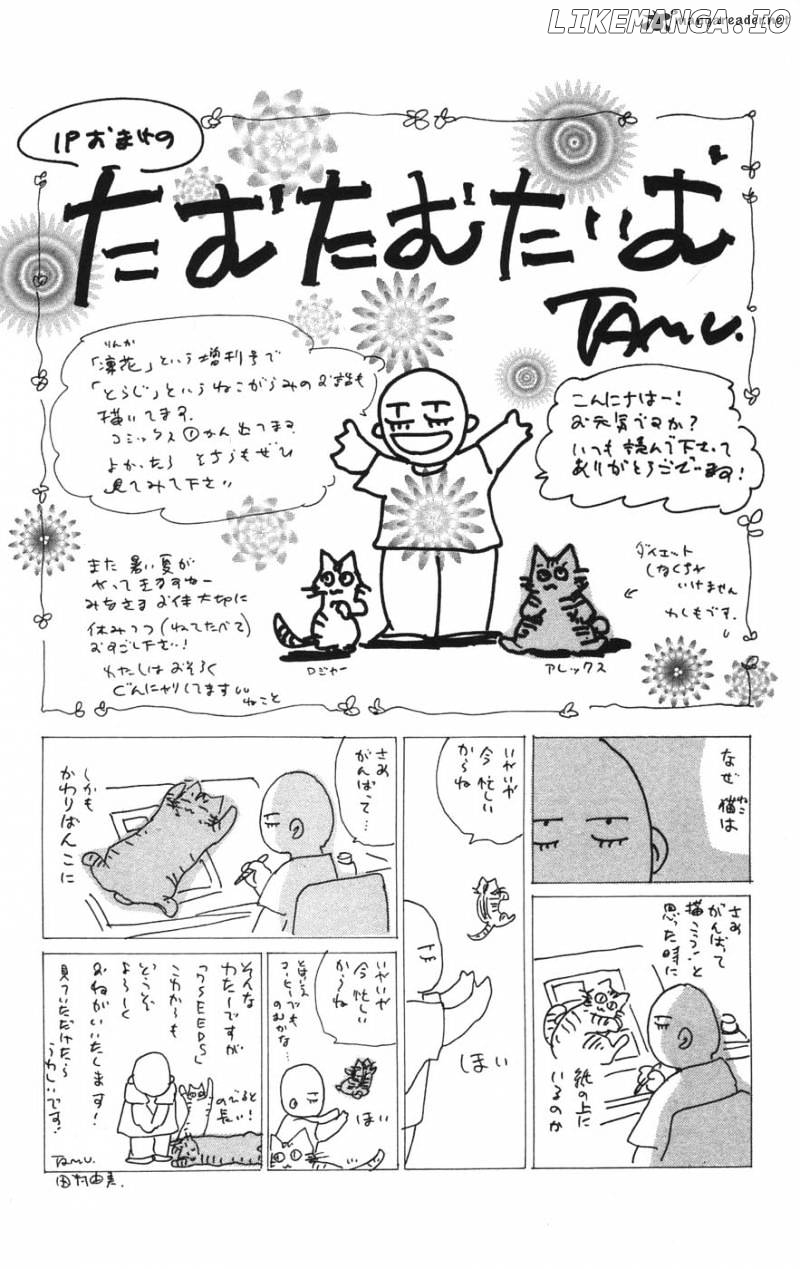 mangareader.net
LIKEMANGA.IO
1Pおまけの
たむたむたいむ
TAMU.
こんにちはー!
お元気ですか?
いつも読んで下さって
ありがとうございます!
りんか
「凛花」という増刊号で
「とらじ」というねこがらみのお話も
描いてます。
コミックス①かん出てます
よかったら そちらもぜひ
見てみて下さい
また 暑い夏が
やって来ますねー
みなさま お体大切に
休みつつ(ねてたべて)
おすごし下さい!
わたしは おそらく
ぐんにゃりしてます
ねこと
ダイエット
しなくちゃ
いけません
わしもです。
ロジャー
アレックス
なぜ 猫は
ねこ
さあ
がんばって
描こう!と
思った時に
紙の上に
いるのか
いやいや
今 忙しい
からね
ほい
さあ
がんばって…
しかも
かわりばんこに
いやいや
今忙しい
からね
とはいえ
コーヒーでも
のむかな…
ほい
そんな
わたしですが
「7SEEDS」
これからも
どうぞ
よろしく
おねがいいたします!
見ていただけたら
うれしいです!
のびると
長い!
TAMU.
田村由美.